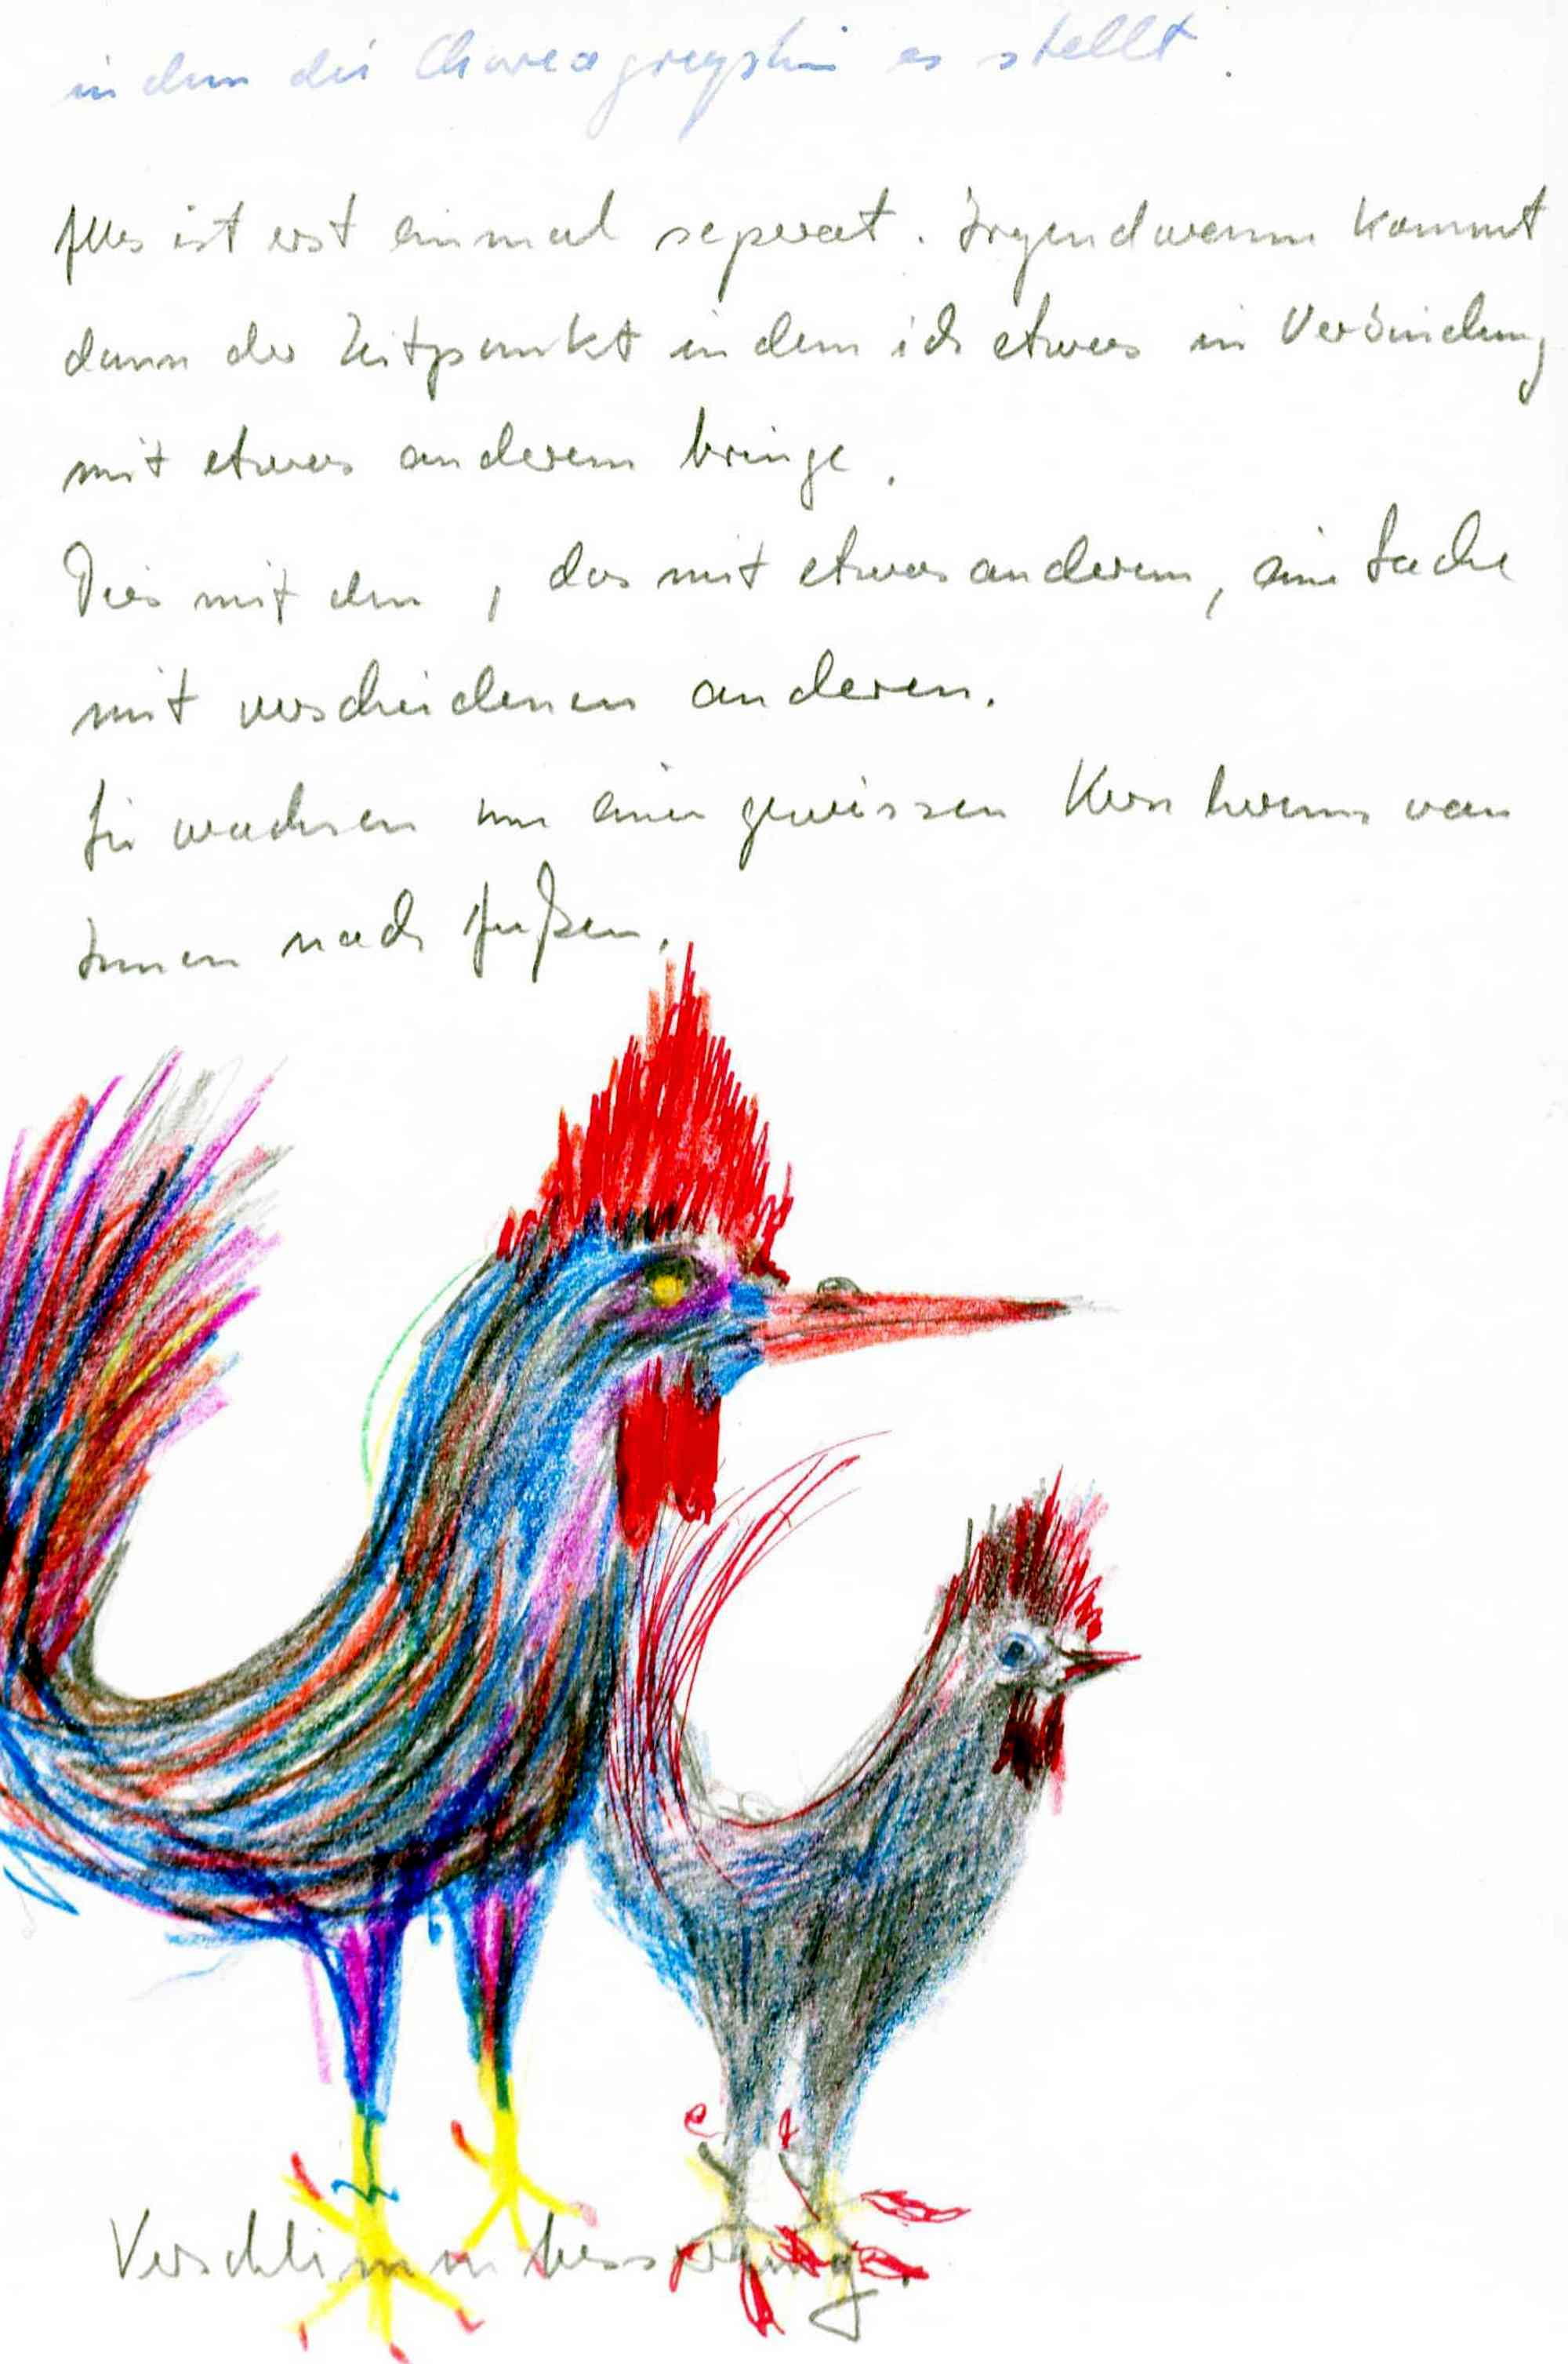 in dem die Choreographie es stellt.
Alles ist erst einmal seperat. Irgendwann kommt
dann der Zeitpunkt in dem ich etwas in Verbindung
mit etwas anderem bringe.
Dies mit dem, das mit etwas anderem, eine Sache
mit verschiedenen anderen.
Sie wachsen um einen gewissen Kern herum von
Innen nach Außen.
Verschlimmbesserung.